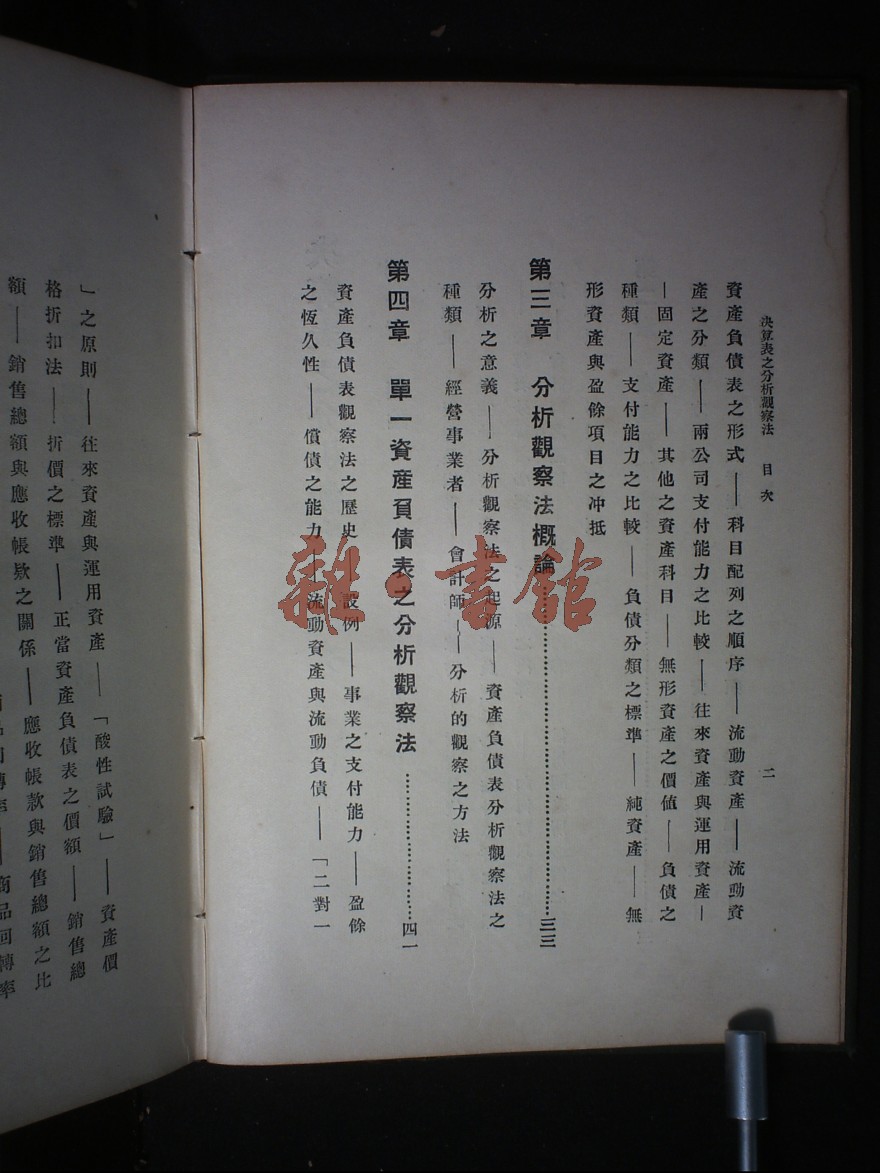 決算表之分析觀察法 目次 二
資產負債表之形式——科目配列之順序——流動資產——流動資
產之分類——兩公司支付能力之比較——往來資產與運用資產—
—固定資產——其他之資產科目——無形資產之價值——負債之
種類——支付能力之比較——負債分類之標準——純資產——無
形資產與盈餘項目之冲抵
第三章 分析觀察法概論……三三
分析之意義——分析觀察法之起源——資產負債表分析觀察法之
種類——經營事業者——會計師——分析的觀察之方法
第四章 單一資產負債表之分析觀察法……四一
資產負債表觀察法之歷史 設例——事業之支付能力——盈餘
之恆久性——償債之能力——流動資產與流動負債——「二對一
」之原則——往來資產與運用資產——「酸性試驗」——資產價
格折扣法——折價之標準——正當資產負債表之價額——銷售總
額——銷售總額與應收帳欵之關係——應收帳款與銷售總額之比
商品回轉率
雜·書館